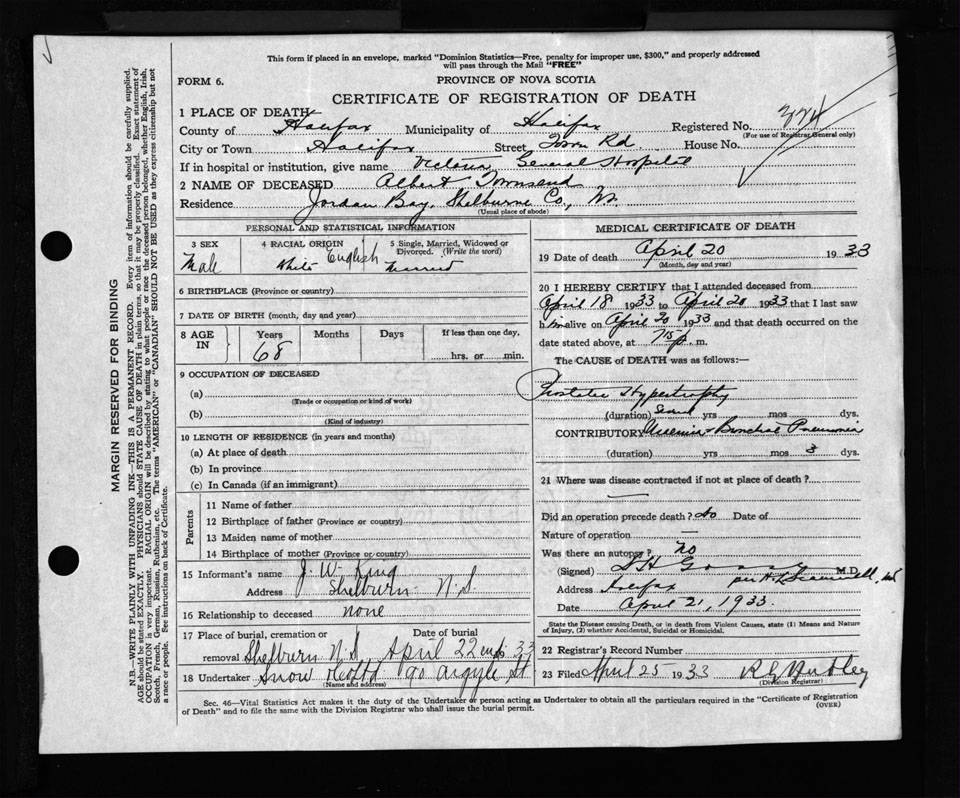 This form if placed in an envelope, marked "Dominion Statistics—Free, penalty for improper use, $300," and properly addressed
will pass through the Mail "FREE"
FORM 6. PROVINCE OF NOVA SCOTIA
CERTIFICATE OF REGISTRATION OF DEATH
1 PLACE OF DEATH
County of Halifax Municipality of Halifax Registered No.
(For use of Registrar General only)
City or Town Halifax Street Rd House No.
If in hospital or institution, give name Victoria General Hospital
2 NAME OF DECEASED Albert Townsend
Residence Jordan Bay, Shelburne Co., N.S.
(Usual place of abode)
PERSONAL AND STATISTICAL INFORMATION
3 SEX 4 RACIAL ORIGIN 5 Single, Married, Widowed or Divorced. (Write the word)
Male White English Married
6 BIRTHPLACE (Province or country)
7 DATE OF BIRTH (month, day and year)
8 AGE IN Years Months Days If less than one day.
68 hrs. or min.
9 OCCUPATION OF DECEASED
(a)
(Trade or occupation or kind of work)
(b)
(Kind of industry)
10 LENGTH OF RESIDENCE (in years and months)
(a) At place of death
(b) In province
(c) In Canada (if an immigrant)
Parents
11 Name of father
12 Birthplace of father (Province or country)
13 Maiden name of mother
14 Birthplace of mother (Province or country)
15 Informant's name J. W. King
Address Shelburn N.S.
16 Relationship to deceased none
17 Place of burial, cremation or removal Date of burial
Shelburn N.S April 22 1933
18 Undertaker Snow 90 Argyle St
(Name and address)
MEDICAL CERTIFICATE OF DEATH
19 Date of death April 20 1933
(Month, day and year)
20 I HEREBY CERTIFY that I attended deceased from
April 18 1933 to April 20 1933 that I last saw
h im alive on April 20 1933 and that death occurred on the
date stated above, at m.
The CAUSE of DEATH was as follows:—
Prostatic Hypertrophy
(duration) yrs mos dys.
CONTRIBUTORY Uremia & Bronchial Pneumonia
(duration) yrs mos 3 dys.
21 Where was disease contracted if not at place of death?
Did an operation precede death? No Date of
Nature of operation
Was there an autopsy? No
(Signed) M.D.
Address Halifax
Date April 21, 1933.
State the Disease causing Death, or in death from Violent Causes, state (1) Means and Nature
of Injury, (2) whether Accidental, Suicidal or Homicidal.
22 Registrar's Record Number
23 Filed April 25 1933
(Division Registrar)
Sec. 46—Vital Statistics Act makes it the duty of the Undertaker or person acting as Undertaker to obtain all the particulars required in the "Certificate of Registration
of Death" and to file the same with the Division Registrar who shall issue the burial permit. (OVER)
MARGIN RESERVED FOR BINDING
N.B.—WRITE PLAINLY WITH UNFADING INK—THIS IS A PERMANENT RECORD. Every item of information should be carefully supplied.
AGE should be stated EXACTLY. PHYSICIANS should STATE CAUSE OF DEATH in plain terms, so that it may be properly classified. Exact statement of
OCCUPATION is very important. RACIAL ORIGIN will be described by stating to what people or race the deceased person belonged, whether English, Irish,
Scotch, French, German, Russian, Ruthenian, etc. The terms "AMERICAN" or "CANADIAN" SHOULD NOT BE USED as they express citizenship but not
a race or people. See instructions on back of Certificate.